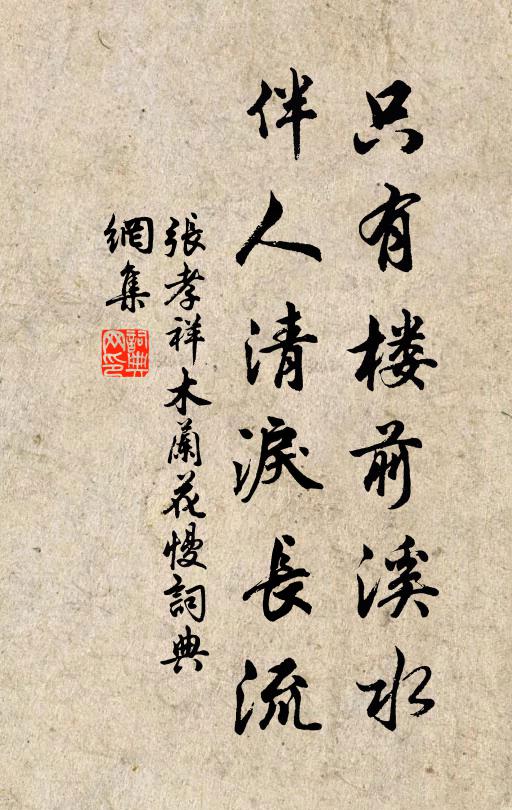 只有楼前溪水
伴人清淚長流
張孝祥木蘭花慢詞典
網集
詞典
网印